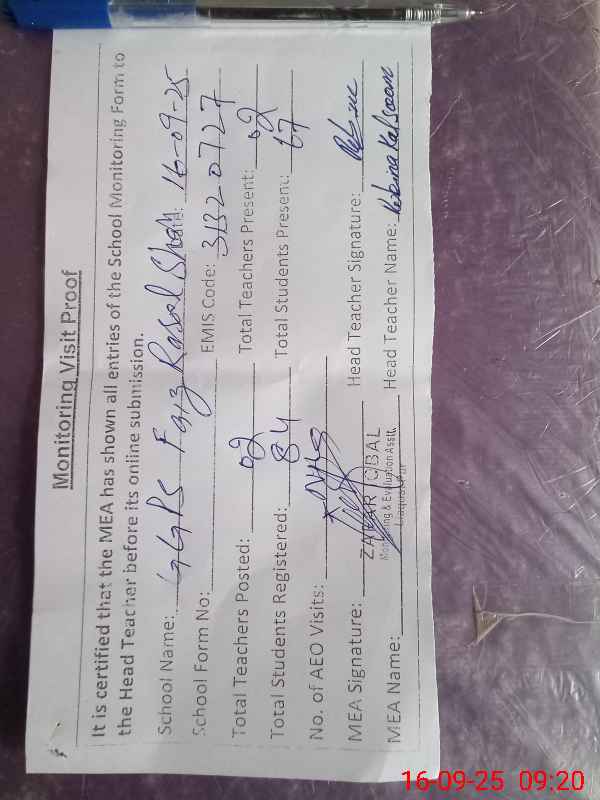 Monitoring Visit Proof
It is certified that the MEA has shown all entries of the School Monitoring Form to
the Head Teacher before its online submission.
School Name: GGPS Faiz Rasool Shah Date: 16-09-25
School Form No: EMIS Code: 31320727
Total Teachers Posted: 02 Total Teachers Present: 02
Total Students Registered: 84 Total Students Present: 67
No. of AEO Visits:
MEA Signature: Head Teacher Signature:
ZAFAR IQBAL
Monitoring & Evaluation Asstt.
Liaquat Pur
MEA Name: Head Teacher Name: Kalsoom
16-09-25 09:20